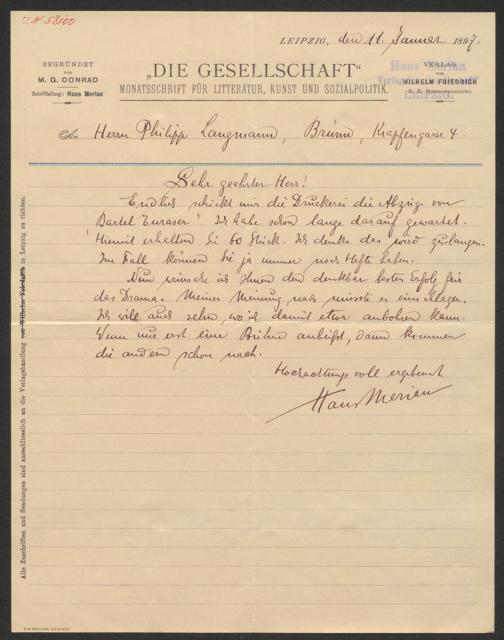 I.N. 58100
LEIPZIG, den 11. Januar 1897.
BEGRÜNDET
VON
M. G. CONRAD
Schriftleitung: Hans Merian
„DIE GESELLSCHAFT“
MONATSSCHRIFT FÜR LITTERATUR, KUNST UND SOZIALPOLITIK.
VERLAG
VON
WILHELM FRIEDRICH
K. R. HOFBUCHHANDLUNG
Hans Merian
LEIPZIG.
An Herrn Philipp Langmann, Brünn, Krapfengasse 4.
Sehr geehrter Herr!
Endlich schickt mir die Druckerei die Abzüge von
Bartel Turaser! Ich habe schon lange darauf gewartet.
Hiermit erhalten Sie 60 Stück. Ich denke das wird zulangen.
Im Fall können Sie ja immer noch Hefte haben.
Nun wünsche ich Ihnen den denkbar besten Erfolg für
das Drama. Meiner Meinung nach müsste es einschlagen.
Ich will auch sehen, wo ich damit etwas anbohren kann.
Wenn nur erst eine Bühne anbeißt, dann kommen
die andern schon nach.
Hochachtungsvoll ergebenst
Hans Merian
Alle Zuschriften und Sendungen sind ausschliesslich an die Verlagshandlung von Wilhelm Friedrich in Leipzig zu richten.